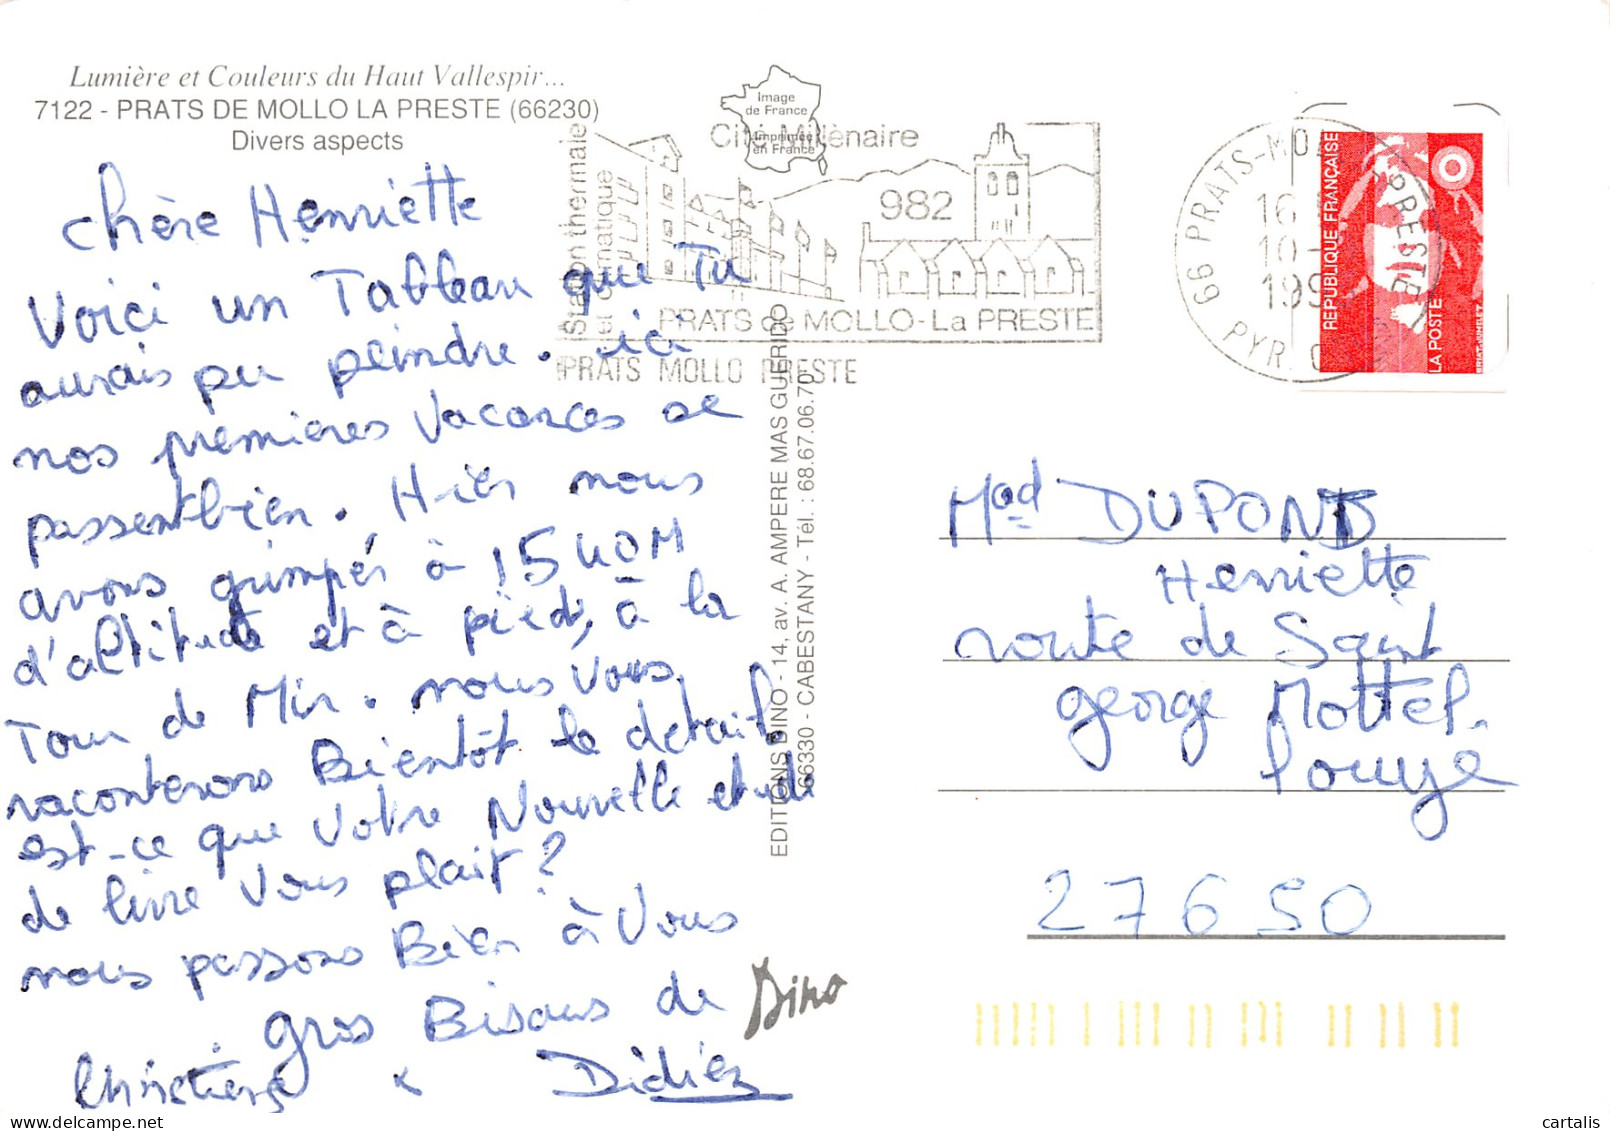 Lumière et Couleurs du Haut Vallespir...
7122 - PRATS DE MOLLO LA PRESTE (66230)
Divers aspects
Image
de France
Imprimée
en France
Cité Millénaire
982
Station thermale
et climatique
PRATS de MOLLO - La PRESTE
PRATS MOLLO PRESTE
66 PRATS-MO PRESTE
16
10
199
PYR. O
REPUBLIQUE FRANÇAISE
LA POSTE
chère Henriette
Voici un Tableau que Tu
aurais pu peindre. ici
nos premières Vacances se
passent bien. Hier nous
avons grimpés à 1540M
d'altitude et à pied, à la
Tour de Mir. nous vous
raconterons Bientôt le detail
est-ce que Votre Nouvelle etude
de livre Vous plait?
nous passons Bien à Vous
gros Bisous de
Christiane & Didier
EDITIONS DINO - 14, av. A. AMPERE MAS GUERIDO
66330 - CABESTANY - Tél. : 68.67.06.70
Dino
Mad DUPONT
Henriette
route de Saint
george Mottel-
27650